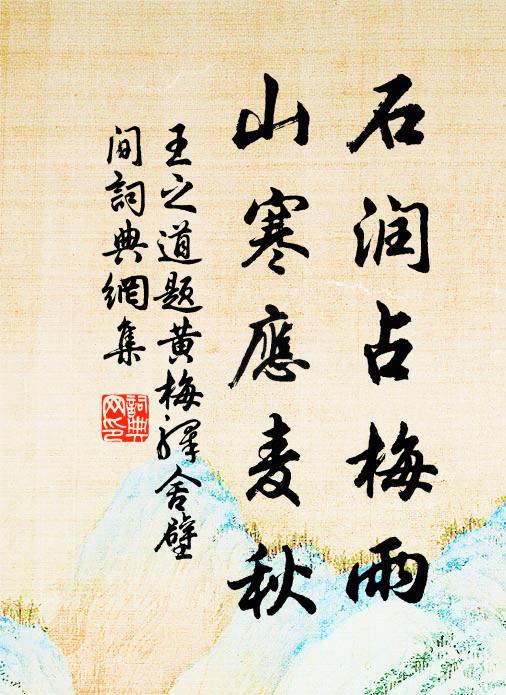 石润占梅雨
山寒應麦秋
王之道题黄梅驿舍壁
间詞典網集
詞典网印